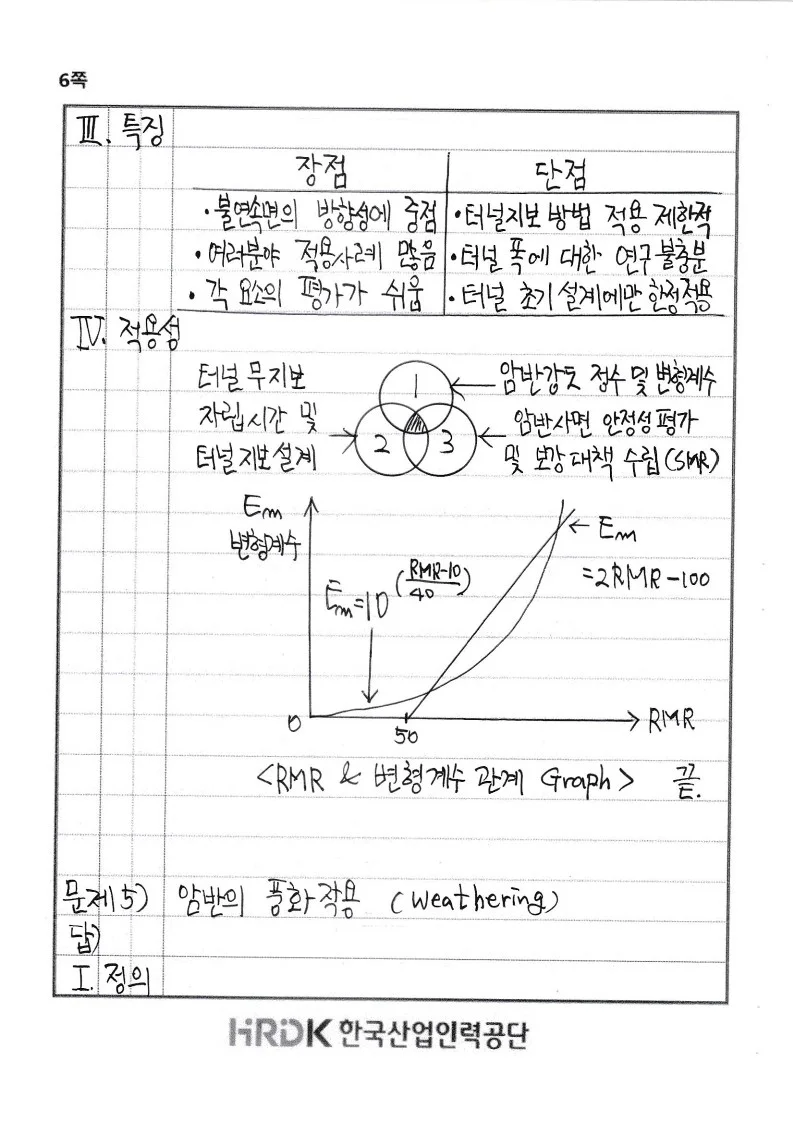 6쪽
Ⅲ. 특징
장점 단점
·불연속면의 방향성에 중점 ·터널지보 방법 적용 제한적
·여러분야 적용사례 많음 ·터널 폭에 대한 연구 불충분
·각 요소의 평가가 쉬움 ·터널 초기 설계에만 한정적용
Ⅳ. 적용성
터널 무지보
자립시간 및
터널지보설계
1
2 3
암반강도 정수 및 변형계수
암반사면 안정성 평가
및 보강대책 수립(SMR)
Em
변형계수
Em=10^((RMR-10)/40)
Em
=2RMR-100
0
50
RMR
<RMR & 변형계수 관계 Graph> 끝.
문제5) 암반의 풍화작용 (Weathering)
답)
Ⅰ. 정의
HRDK 한국산업인력공단